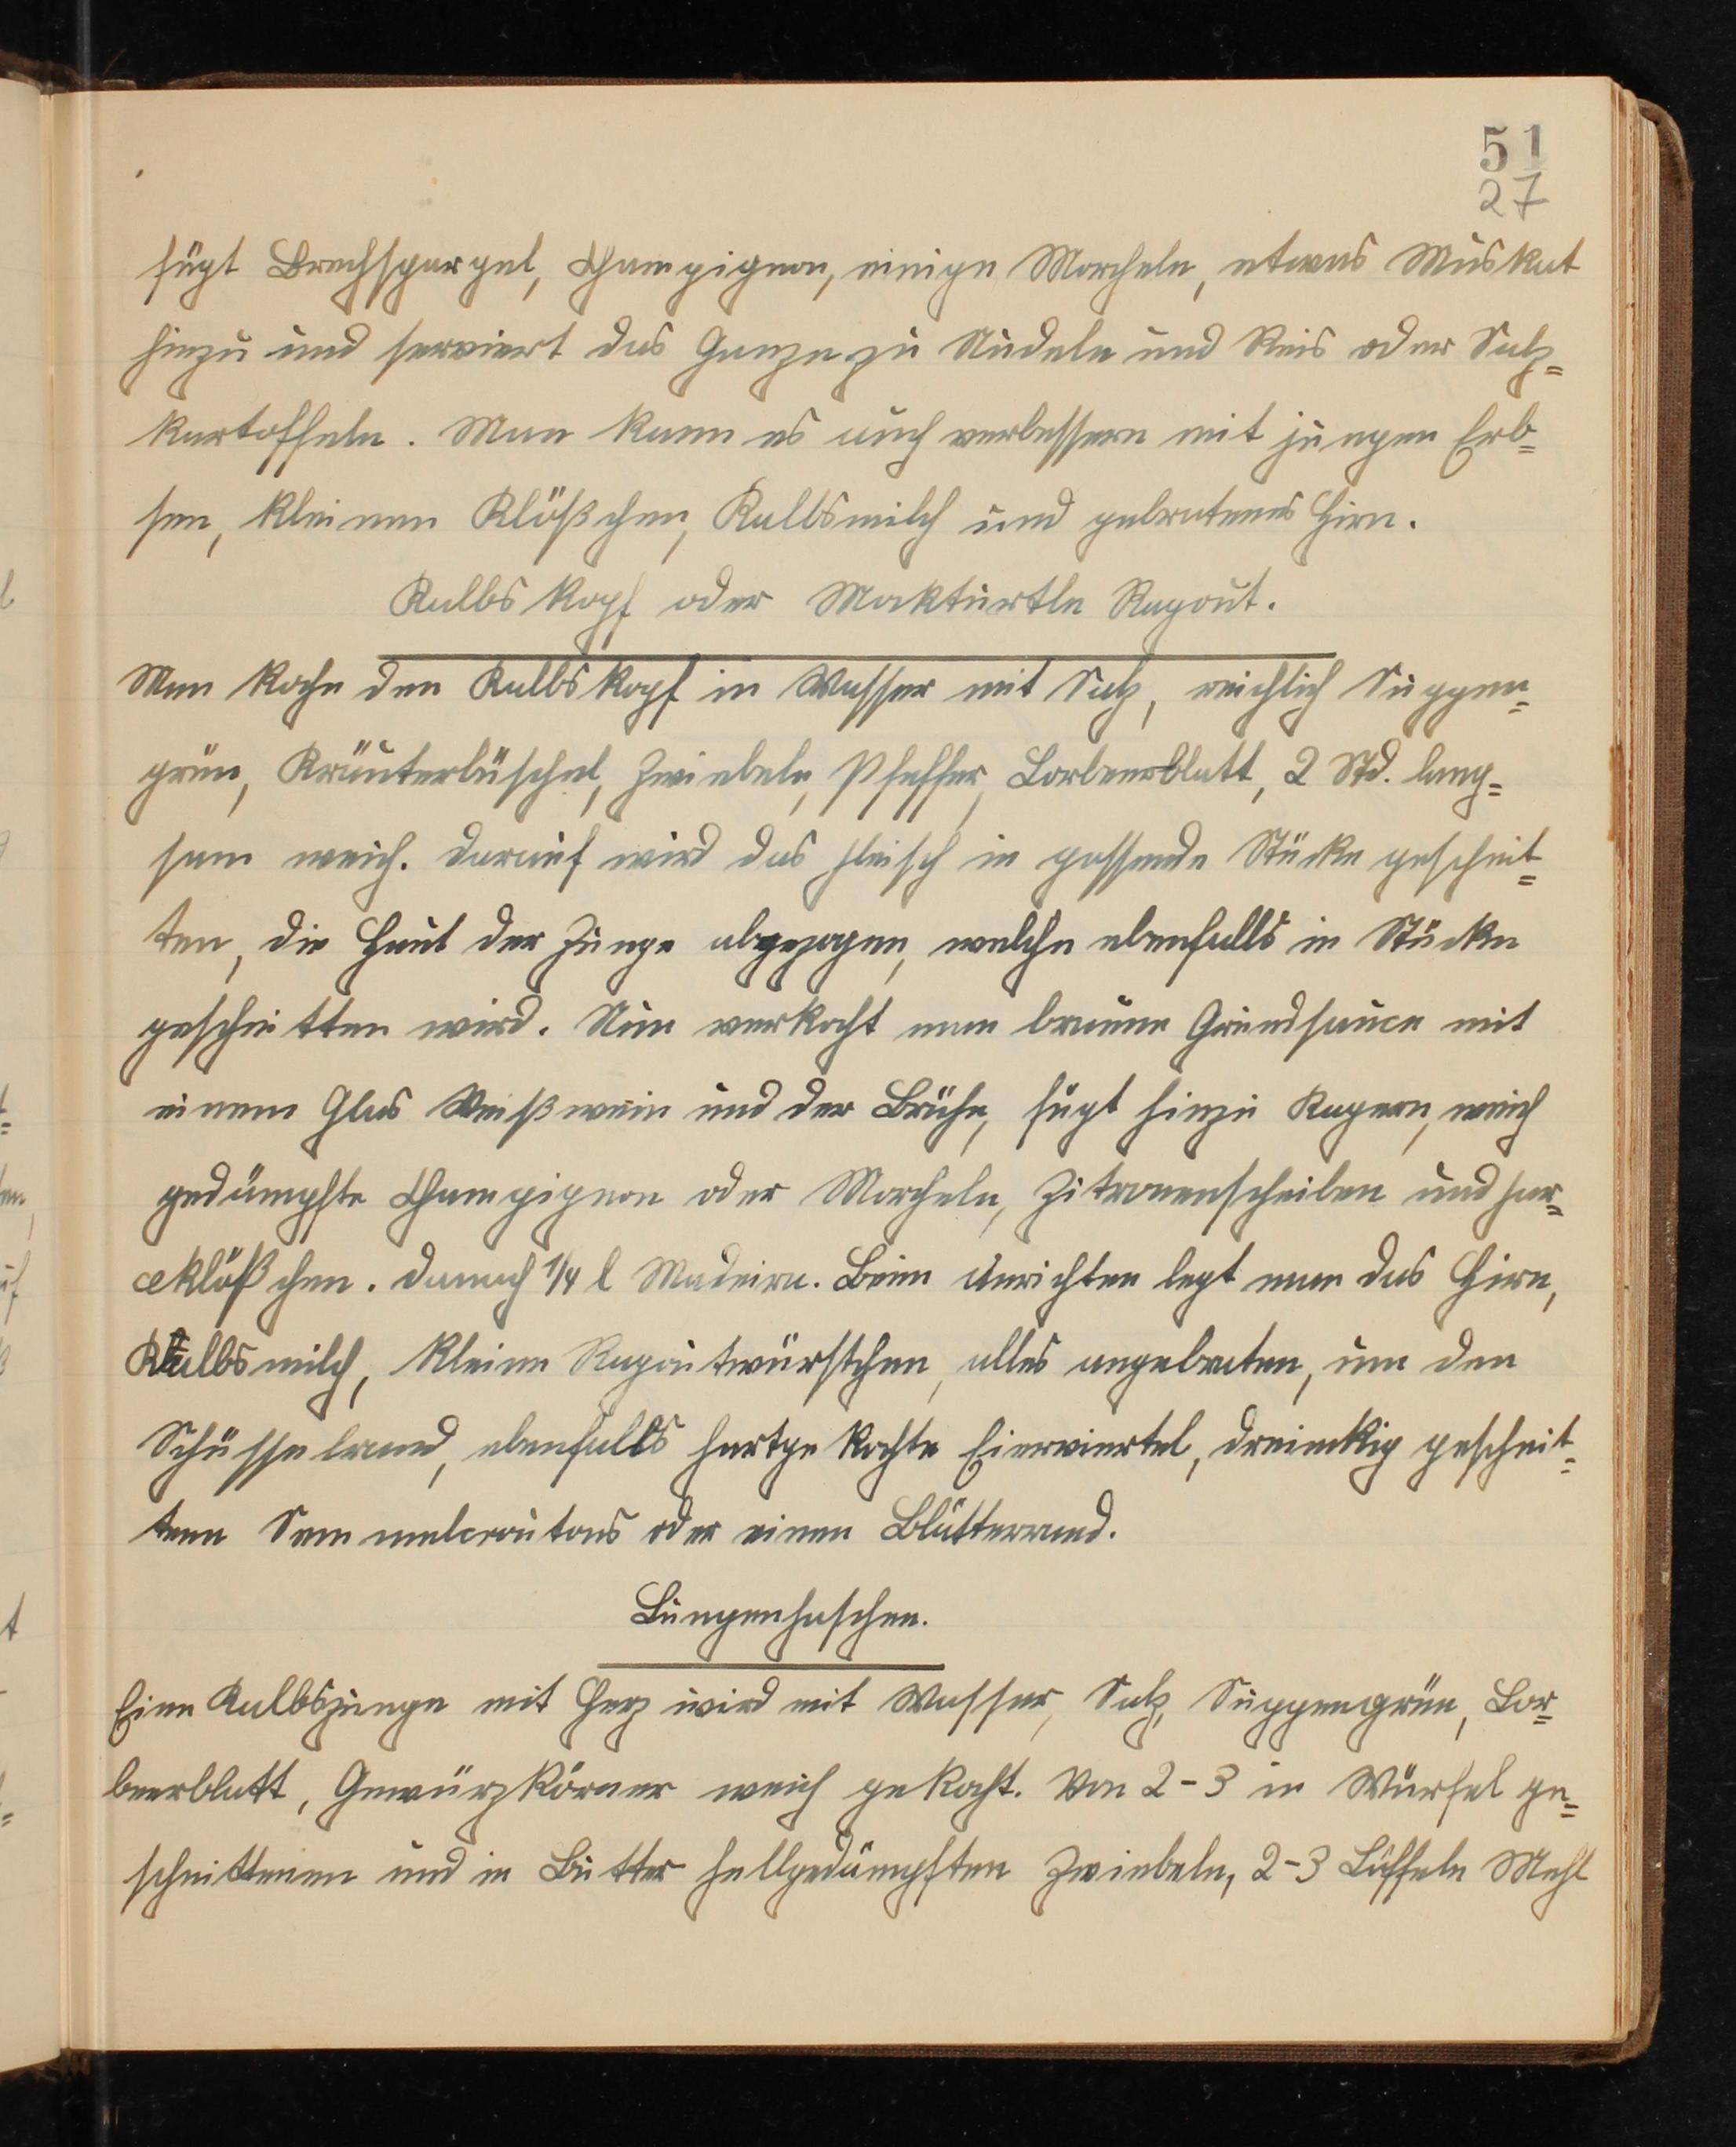 51
27
fügt Brechspargel, Champignon, einige Morcheln, etwas Muskat
hinzu und serviert das Ganze zu Nudeln und Reis oder Salz=
kartoffeln. Man kann es auch verbessern mit jungen Erb=
sen, kleinen Klößchen, Kalbsmilch und gebratenes Hirn.
Kalbskopf oder Makturtle Ragout.
Man koche den Kalbskopf in Wasser mit Salz, reichlich Suppen=
grün, Kräuterbüschel, Zwiebeln, Pfeffer, Lorbeerblatt, 2 Std. lang=
sam weich. Darauf wird das Fleisch in passende Stücke geschnit=
ten, die Haut der Zunge abgezogen, welche ebenfalls in Stücke
geschnitten wird. Nun verkocht man braune Grundsauce mit
einem Glas Weißwein und der Brühe, fügt hinzu Kapern, weich
gedämpfte Champignon oder Morcheln, Zitronenscheiben und Far=
ceklößchen. Danach 1/4 l Madeira. Beim Anrichten legt man das Hirn,
Kalbsmilch, kleine Ragoutwürstchen, alles angebraten, um den
Schüsselrand, ebenfalls hartgekochte Eierviertel, dreieckig geschnit=
tene Semmelcroutons oder einen Blätterrand.
Lungenhaschee.
Eine Kalbszunge mit Herz wird mit Wasser, Salz, Suppengrün, Lor=
beerblatt, Gewürzkörner weich gekocht. Von 2-3 in Würfel ge=
schnittenen und in Butter hellgedämpften Zwiebeln, 2-3 Löffeln Mehl